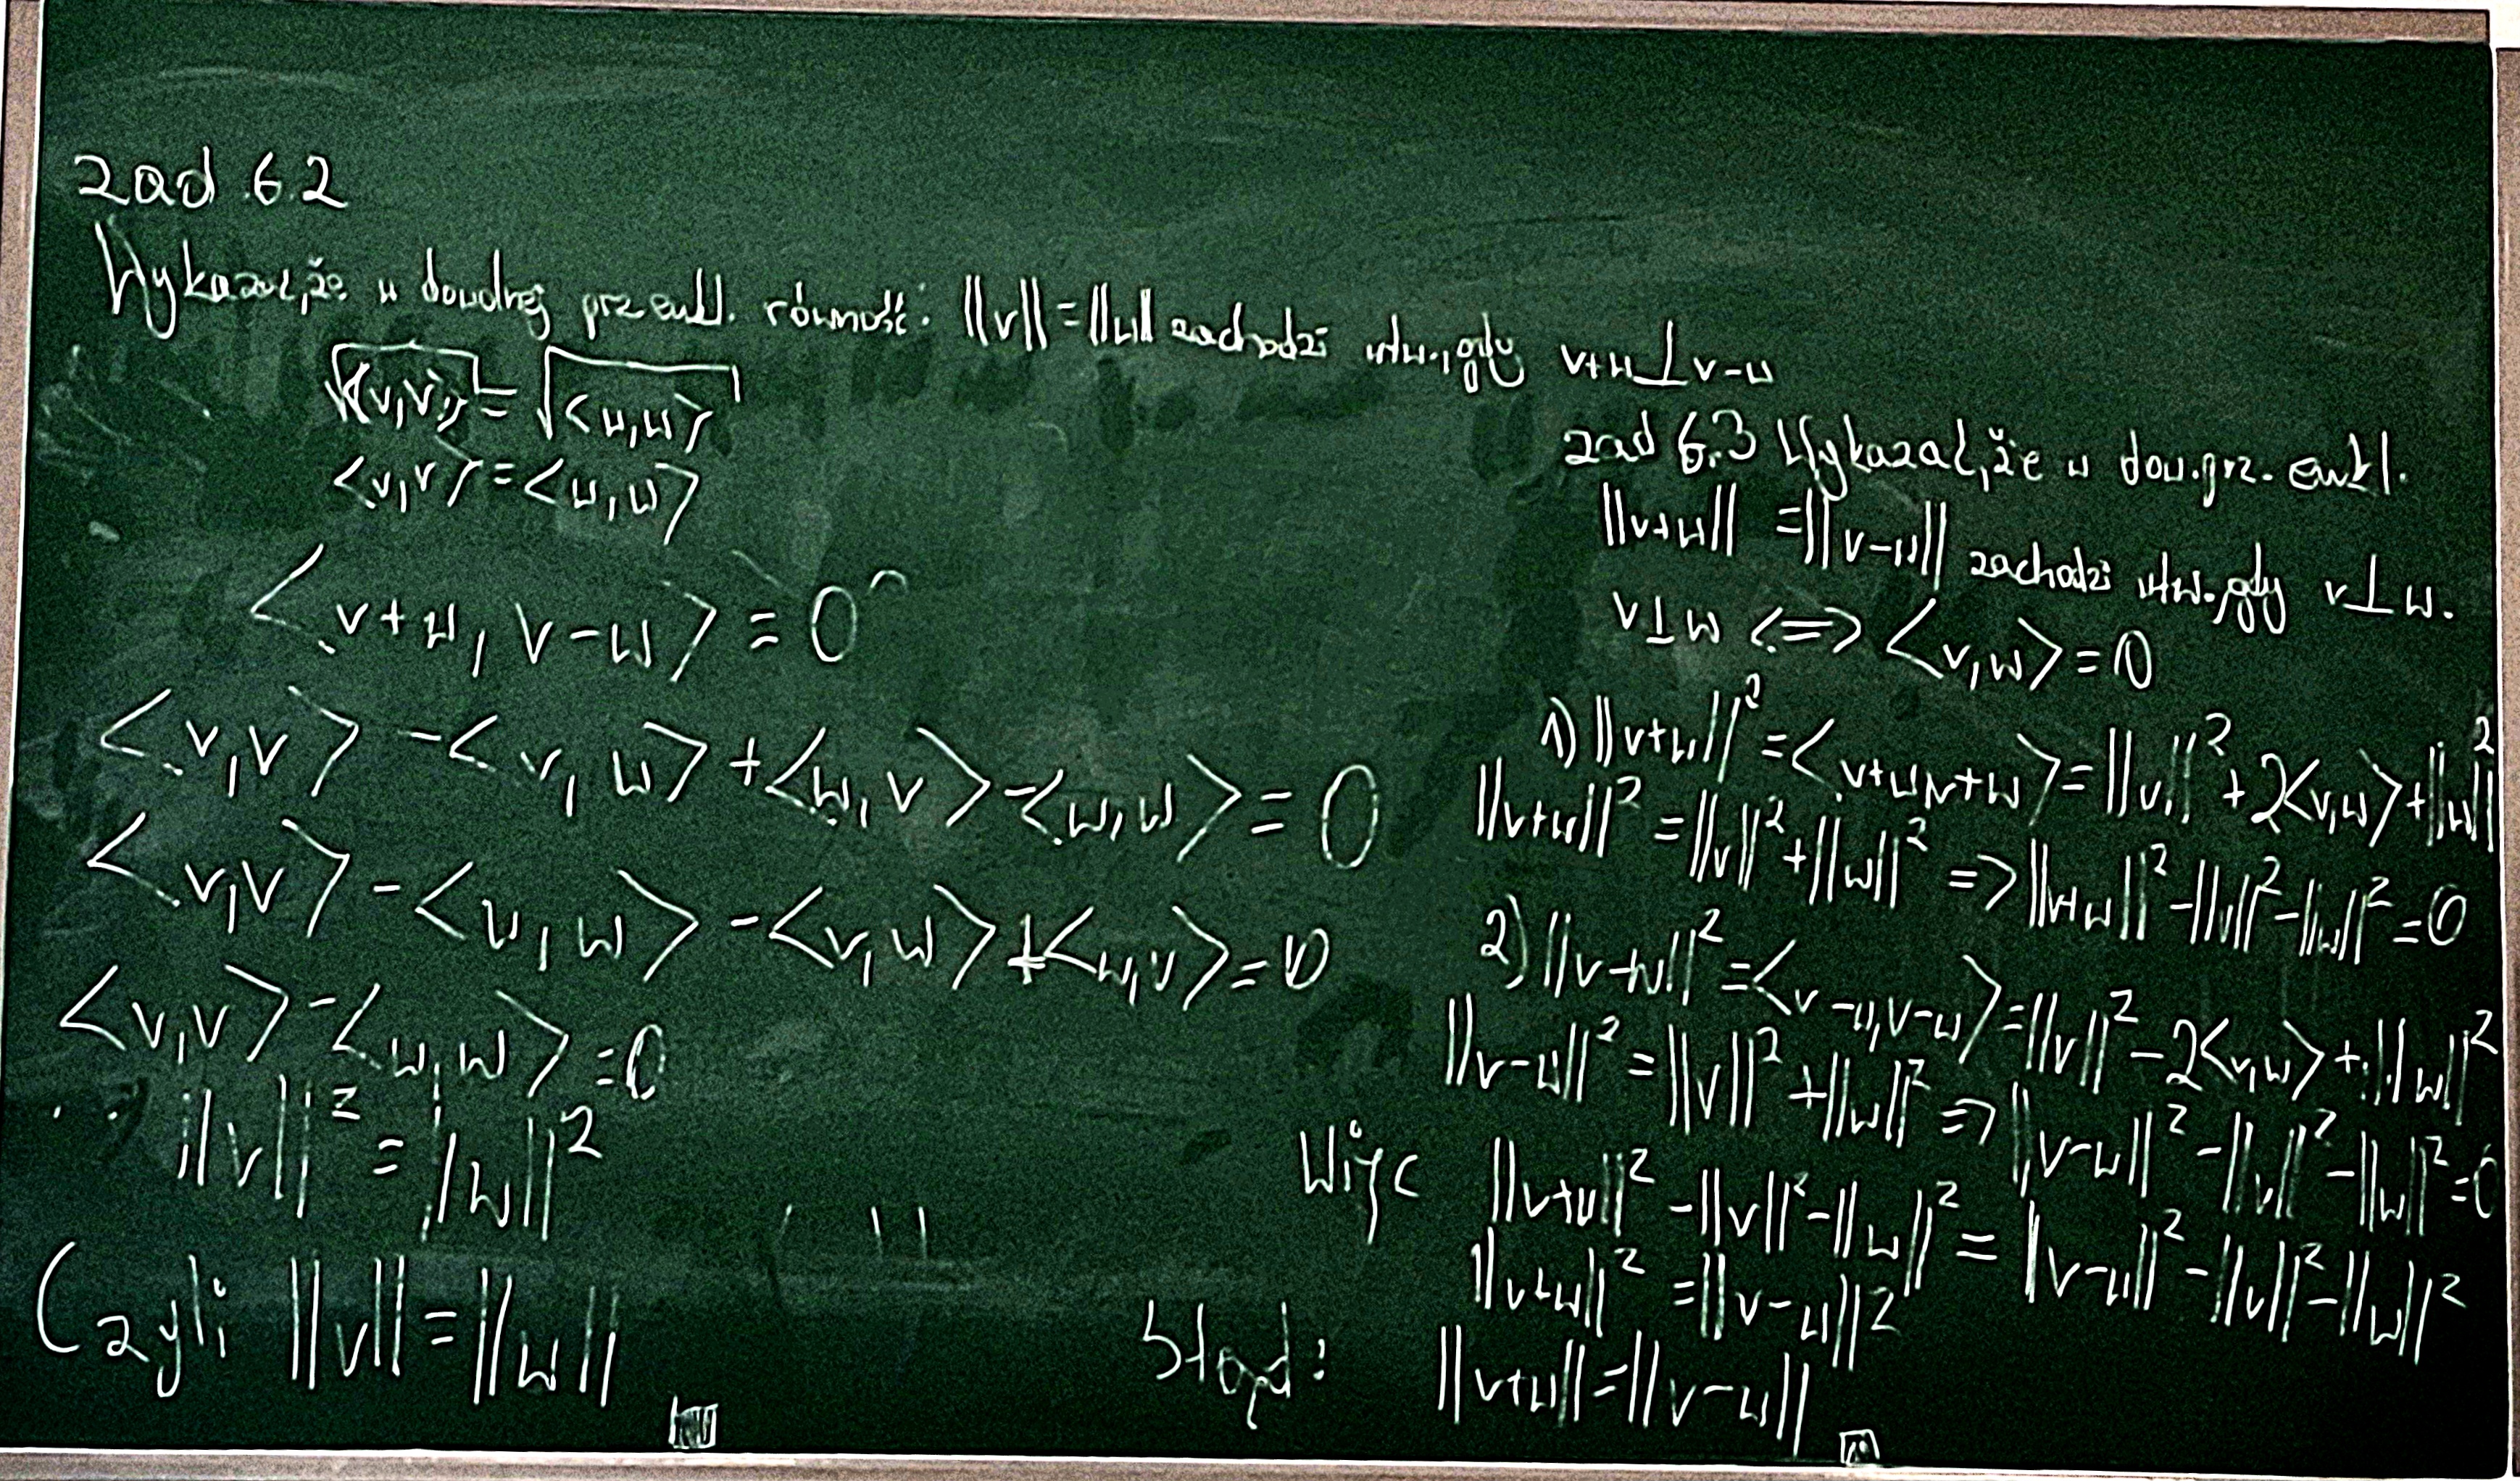 zad 6.2
Wykazać, że w dowolnej prz eukl. równość: ||v|| = ||w|| zachodzi wtw., gdy v+w ⊥ v-w
√<v,v> = √<w,w>
<v,v> = <w,w>
<v+w, v-w> = 0
<v,v> - <v,w> + <w,v> - <w,w> = 0
<v,v> - <w,w> - <v,w> + <w,v> = 0
<v,v> - <w,w> = 0
||v||² = ||w||²
Czyli ||v|| = ||w||
zad 6.3 Wykazać, że w dow. prz. eukl.
||v+w|| = ||v-w|| zachodzi wtw., gdy v ⊥ w.
v ⊥ w <=> <v,w> = 0
1) ||v+w||² = <v+w,v+w> = ||v||² + 2<v,w> + ||w||²
||v+w||² = ||v||² + ||w||² => ||v+w||² - ||v||² - ||w||² = 0
2) ||v-w||² = <v-w,v-w> = ||v||² - 2<v,w> + ||w||²
||v-w||² = ||v||² + ||w||² => ||v-w||² - ||v||² - ||w||² = 0
Więc ||v+w||² - ||v||² - ||w||² = ||v-w||² - ||v||² - ||w||²
||v+w||² = ||v-w||²
Stąd: ||v+w|| = ||v-w||